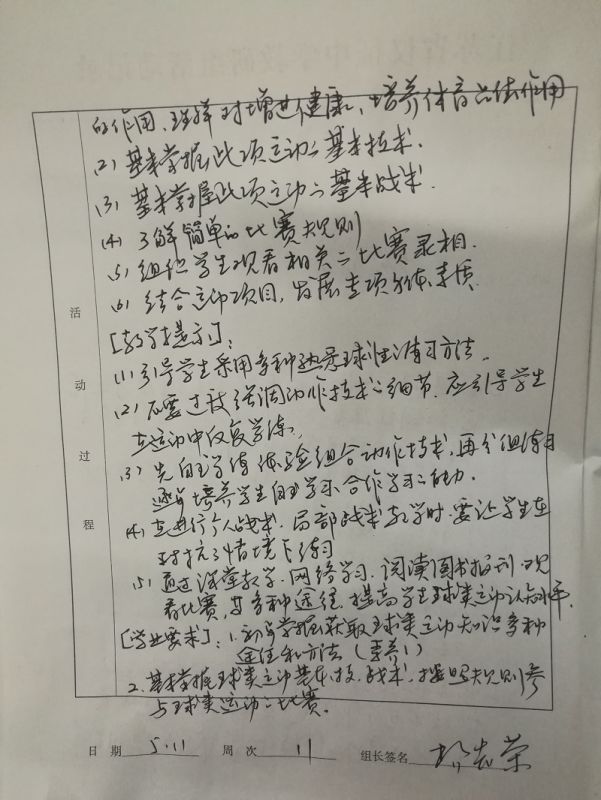 的作用、理解对增进健康、培养体育品德作用
(2) 基本掌握此项运动的基本技术.
(3) 基本掌握此项运动的基本战术.
(4) 了解简单的比赛规则
(5) 组织学生观看相关的比赛录相.
(6) 结合运动项目,发展专项身体素质
[教学提示]:
(1) 引导学生采用多种熟悉球性练习方法.
(2) 不要过分强调动作技术的细节.应引导学生
在运动中反复学练,
(3) 先自主学练体验组合动作技术,再分组练习
逐步培养学生自主学习合作学习的能力.
(4) 在进行个人战术、局部战术教学时.要让学生在
对抗的情境下练习
(5) 通过课堂教学.网络学习.阅读图书报刊.观
看比赛,等多种途径.提高学生球类运动认知水平.
[学业要求]:1.初步掌握获取球类运动知识多种
途径和方法(素养1)
2.基本掌握球类运动基本技、战术,按照规则参
与球类运动的比赛.
活动过程
日 期 5.11 周 次 11 组长签名